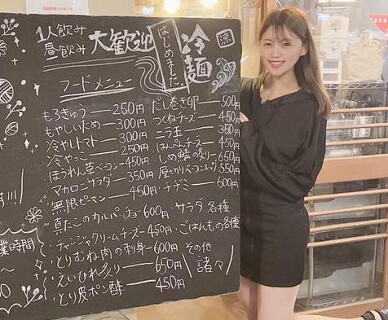 1人飲み
昼飲み
大歓迎
はじめました
冷麺
涼
フードメニュー
もろきゅう 250円
もやしいため 300円
冷やしトマト 300円
冷やっこ 250円
ほうれん草ベーコン 450円
マカロニサラダ 350円
無限ピーマン 450円
真だこのカルパッチョ 600円
チャンジャクリームチーズ 450円
とりむね肉の刺身 600円
えいひれ炙り 650円
とり皮ポン酢 450円
だし巻き卵 500円
つくねチーズ
ニラ玉
はんぺんチーズ 450円
しめ鯖の炙り 650円
厚切りベーコンエッグ 550円
チヂミ 600円
サラダ各種
ごはんもの各種
その他
諸々
業時間